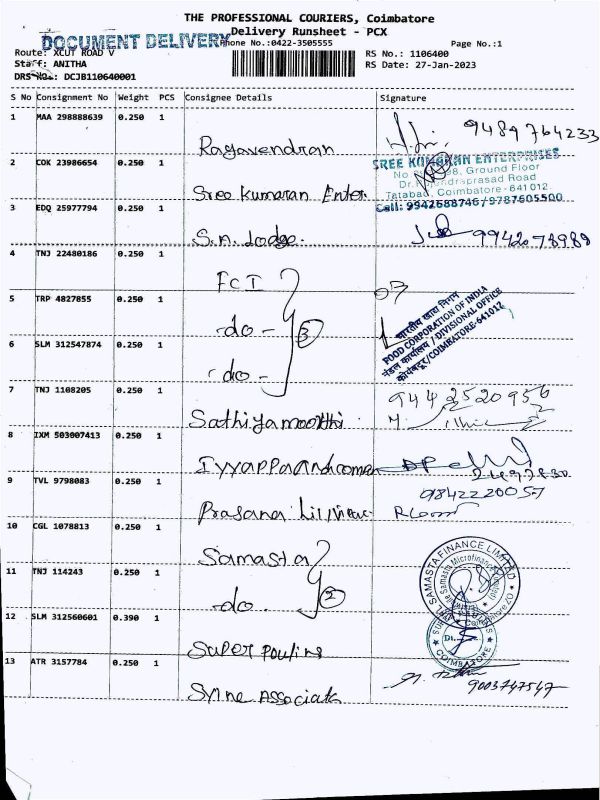 THE PROFESSIONAL COURIERS, Coimbatore
DOCUMENT DELIVERY
Delivery Runsheet - PCX
Phone No.:0422-3505555
Page No.:1
Route: XCUT ROAD V
RS No.: 1106400
Staff: ANITHA
RS Date: 27-Jan-2023
DRS No.: DCJB110640001
S No Consignment No Weight PCS Consignee Details Signature
1 MAA 298888639 0.250 1 Ragavendran 9489764233
2 COK 23986654 0.250 1 Sree Kumaran Enter.
SREE KUMARAN ENTERPRISES
Ground Floor
Dr. Rajendraprasad Road
Tatabad, Coimbatore - 641012.
Call: 9942688746/9787605500
3 EDQ 25977794 0.250 1 S.n. Lodge. 9942078988
4 TNJ 22480186 0.250 1 FCI
5 TRP 4827855 0.250 1 -do- 3
6 SLM 312547874 0.250 1 -do-
भारतीय खाद्य निगम
FOOD CORPORATION OF INDIA
मंडल कार्यालय / DIVISIONAL OFFICE
कोयंबटूर/COIMBATORE-641012
7 TNJ 1108205 0.250 1 Sathiyamoorthi 9442520956
8 IXM 503007413 0.250 1
9 TVL 9798083 0.250 1 Prasana 9842220057
10 CGL 1078813 0.250 1 Samasta
11 TNJ 114243 0.250 1 -do. 2
SAMASTA FINANCE LIMITED
12 SLM 312560601 0.390 1 Super
COIMBATORE
13 ATR 3157784 0.250 1 Associats 9003747547